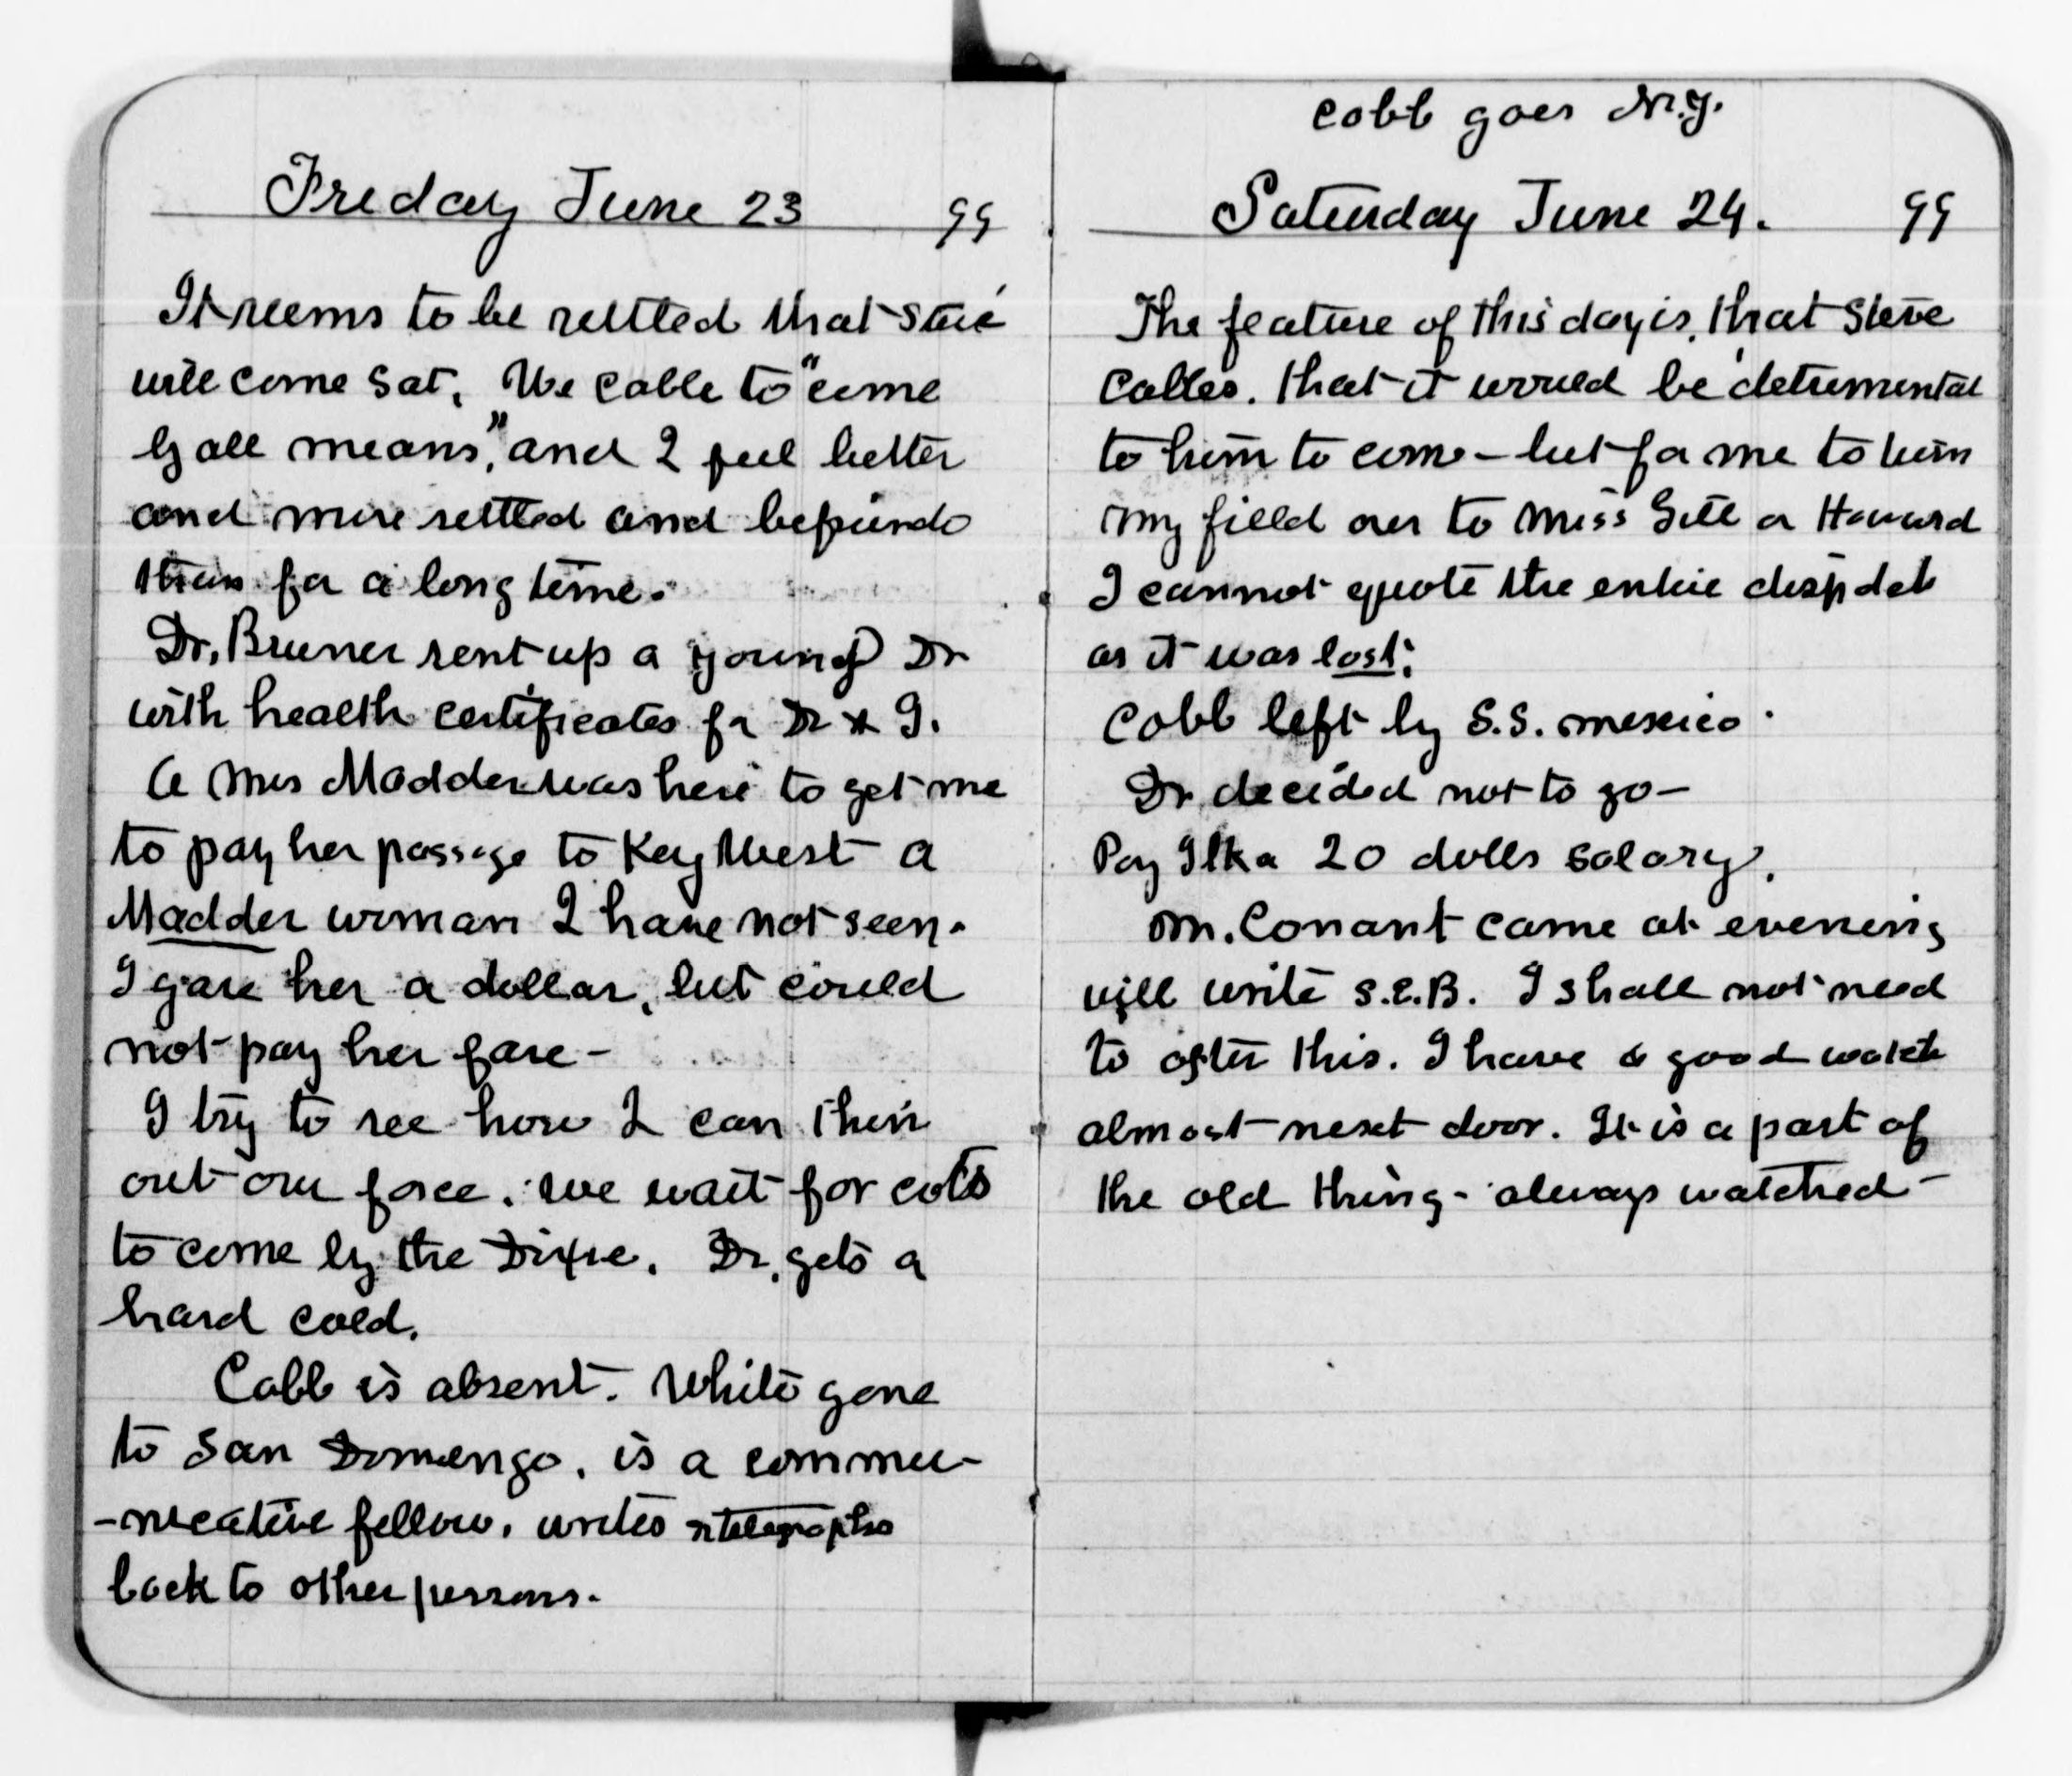 Friday June 23 99
It seems to be settled that Steve
will come Sat. We cable to "come
by all means," and I feel better
and more settled and
than for a long time.
Dr. Bruner sent up a young Dr
with health certificates for Dr & I.
A Mrs Madder was here to get me
to pay her passage to Key West a
Madder woman I have not seen.
I gave her a dollar, but could
not pay her fare -
I try to see how I can thin
out our force. We wait for cots
to come by the Dixie. Dr. gets a
hard cold.
Cobb is absent. White gone
to San Domengo. is a commu-
-nicative fellow. writes & telegraphs
back to other persons.
Cobb goes N.Y.
Saturday June 24. 99
The feature of this day is, that Steve
Cables. that it would be detrimental
to him to come - but for me to turn
my field over to Miss Gill or Howard
I cannot quote the entire
as it was lost.
Cobb left by S.S. Mexico.
Dr. decided not to go -
Pay Ilka 20 dolls salary.
Mr. Conant came at evening
will write S.E.B. I shall not need
to after this. I have a good watch
almost next door. It is a part of
the old thing - always watched -